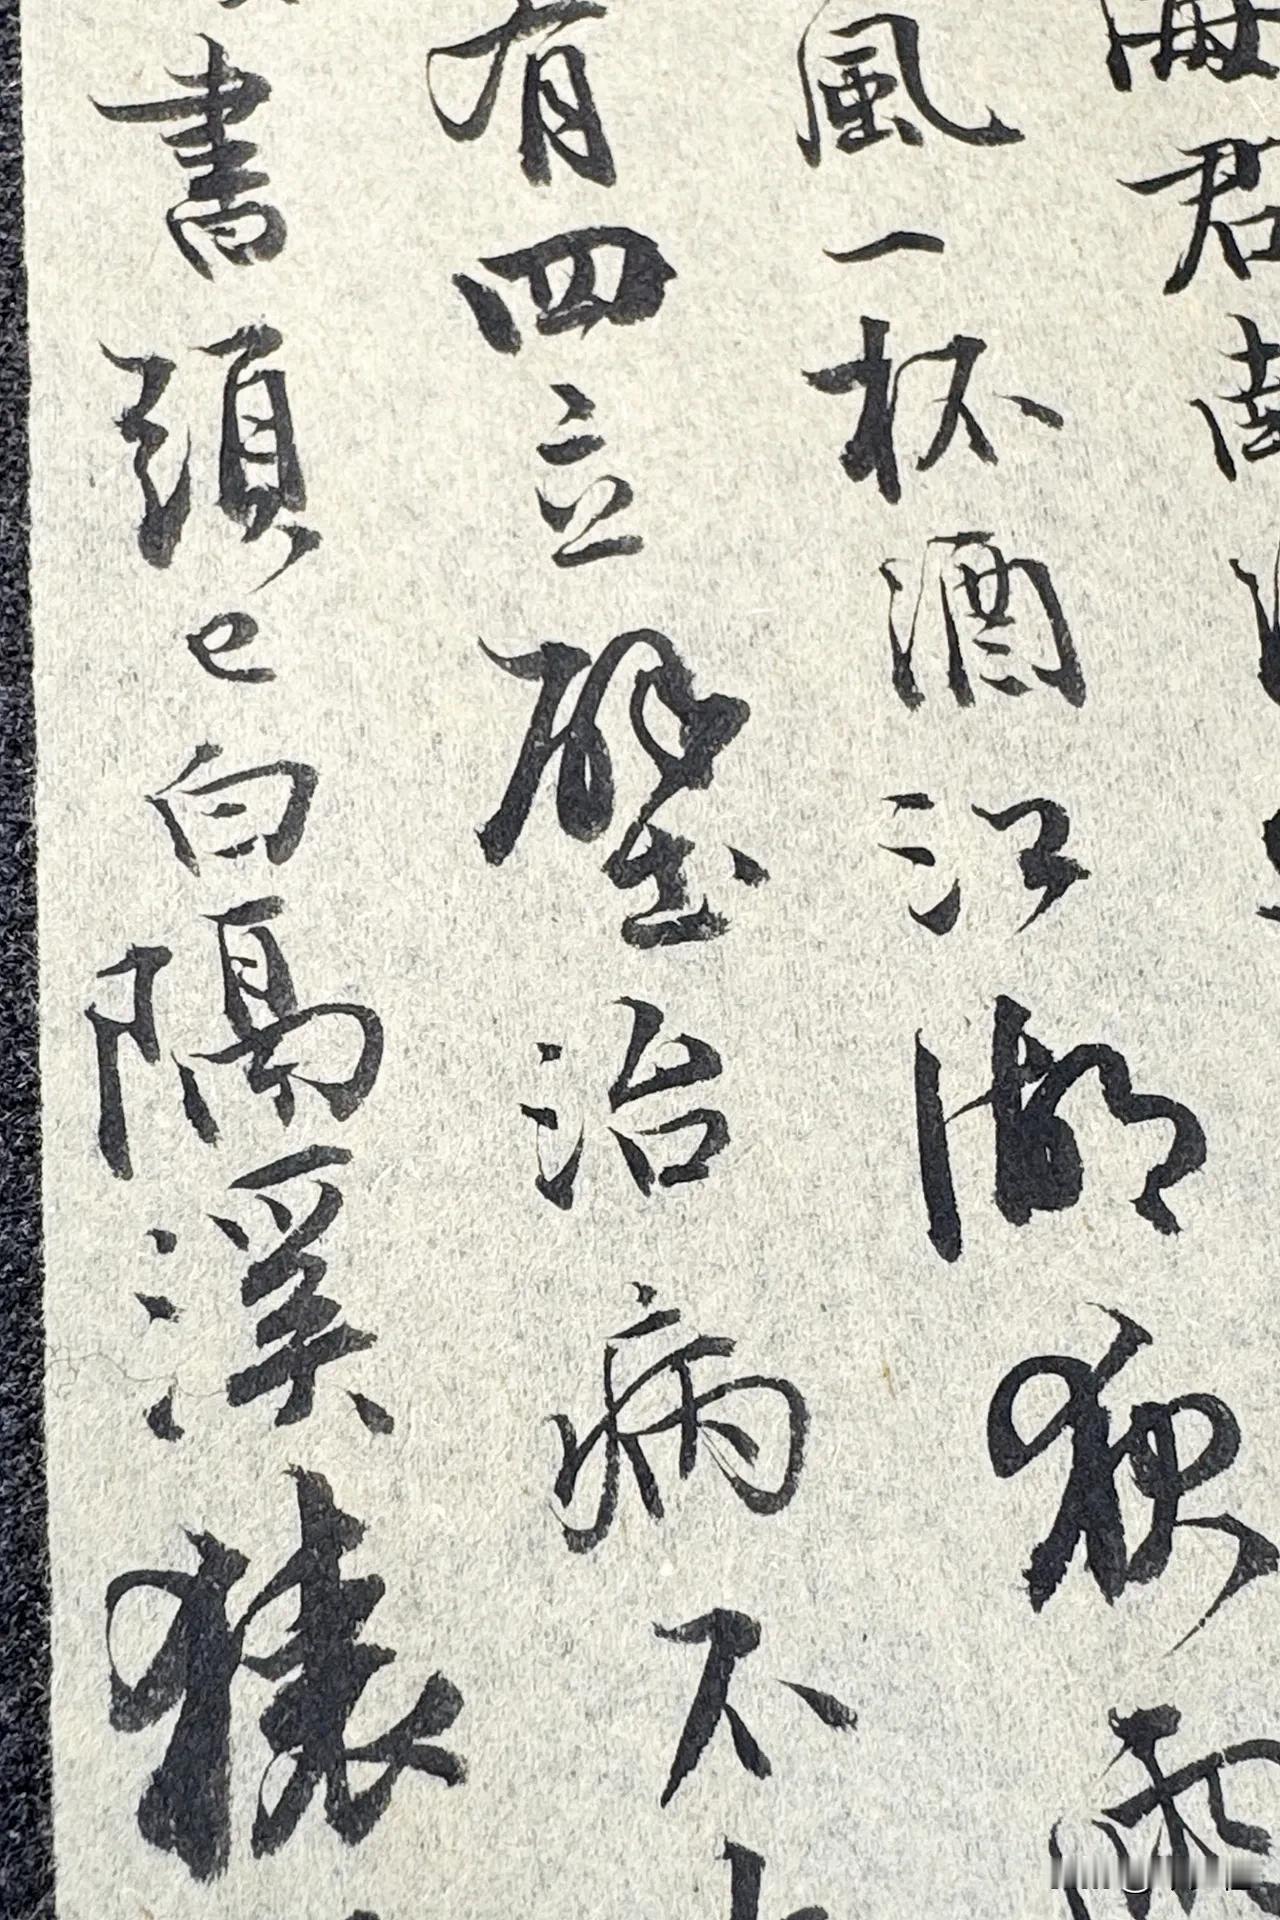 海君南
風一杯酒江湖夜雨
有四立壁治病不
書頭已白隔溪猿